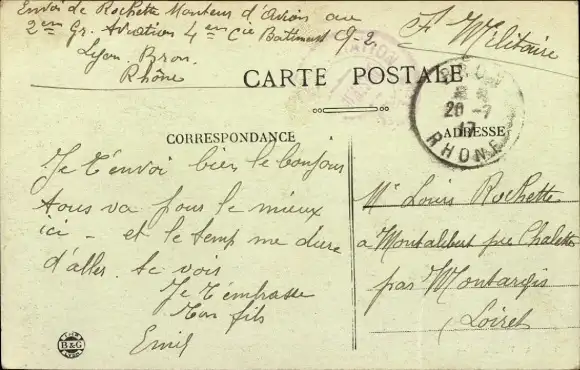 Envoi de Rochette Monteur d'Avion au
2em Gr. Aviation 4em Cie Batiment D-2
Lyon. Bron.
Rhône
F. Militaire
CARTE POSTALE
BRON
20-7
17
RHONE
CORRESPONDANCE
ADRESSE
Je t'envoi bien le bonjour
tous va pour le mieux
ici - et le temp me dure
d'aller te voir
Je t'embrasse
Ton fils
Emil
Mr Louis Rochette
a Montalibert pres Chalette
par Montargis
(Loiret
B&G
LYON